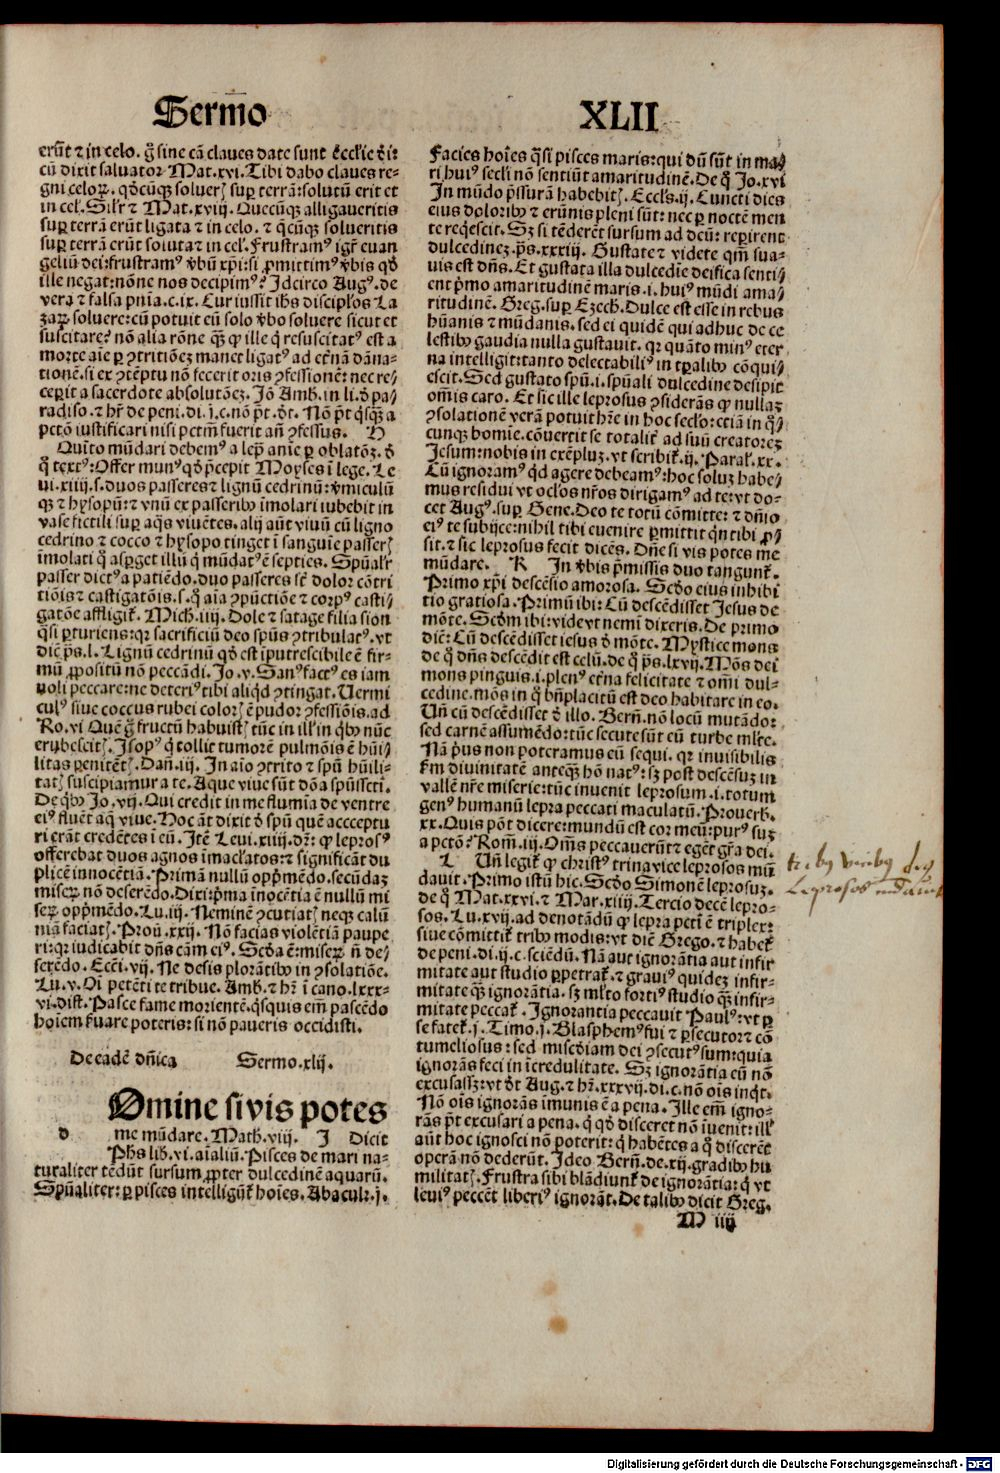 Sermo XLII
erūt ⁊ in celo. ḡ sine cā claues date sunt ecclie di:
cū dixit saluator Mat.xvi. Tibi dabo claues re-
gni celoꝝ. qd̄cūqꝫ solueris sup terrā: solutū erit et
in cel. Silr ⁊ Mat.xviij. Quecūqꝫ alligaueritis
sup terrā erūt ligata ⁊ in celo. ⁊ q̄cūqꝫ solueritis
sup terrā erūt soluta ⁊ in cel. Frustramꝰ igr̄ euan
geliū dei: frustramꝰ v̄bū xp̄i: si ꝓmittimꝰ v̄bis qd̄
ille negat: nōne nos decipimꝰ? Idcirco Augꝰ. de
vera ⁊ falsa pn̄ia.c.ix. Cur iussit ihs discip̄los La
zaꝝ soluere: cū potuit eū solo v̄bo soluere sicut et
suscitare? nō alia rōne qꝫ ꝙ ille q̄ resuscitatꝰ est a
morte aīe ꝑ ꝯtritiōeꝫ manet ligatꝰ ad etn̄ā dāna-
tionē. si ex ꝯtēptu nō fecerit oris ꝯfessionē: nec re-
cepit a sacerdote absolutōeꝫ. Jō Amb. in li. d̄ pa-
radiso. ⁊ hr̄ de peni.di.j.c.nō pt̄. d̄t. Nō pt̄ q̄sqꝫ a
pctō iustificari nisi pctm̄ fuerit añ ꝯfessus. H
Quīto mūdari debemꝰ a lep̄ anīe ꝑ oblatōeꝫ. d̄
q̄ textꝰ: Offer munꝰ qd̄ p̄cepit Moyses ī lege. Le
ui.xiiij.s. duos passeres ⁊ lignū cedrinū: v̄miculū
qꝫ ⁊ hysopū: ⁊ vnū ex passeribꝰ imolari iubebit in
vase fictili sup aq̄s viuētes. aliī aūt viuū cū ligno
cedrino ⁊ cocco ⁊ hysopo tinget ī sanguīe passeris
imolati q̄ asꝑget illū q̄ mūdatꝰ ē septies. Spūalr̄
passer dictꝰ a patiēdo. duo passeres sr̄ dolor cōtri
tiōis ⁊ castigatōis. s. q̄ aīa ꝯpūctiōe ⁊ corpꝰ casti-
gatōe affligit̄. Mich.iiij. Dole ⁊ satage filia sion
q̄si ꝑturiens: qꝛ sacrificiū deo spūs ꝯtribulatꝰ. vt
dīc p̄s.l. Lignū cedrinū qd̄ est īputrescibile ē fir-
mū ꝓpositū nō peccādi. Jo.v. Sanꝰ factꝰ es iam
noli peccare: ne deteriꝰ tibi aliq̄d ꝯtingat. Uermi
culꝰ siue coccus rubei coloris ē pudor ꝯfessiōis. ad
Ro.vi Quē ḡ fructū habuistis tūc in ill in qbꝰ nūc
erubescitis. Isopꝰ q̄ tollit tumorē pulmōis ē hūi-
litas penitētis. Dañ.iij. In aīo ꝯtrito ⁊ spū hūili-
tatis suscipiamur a te. Aque viue sūt dōa spūsscti.
De qbꝰ Jo.vij. Qui credit in me flumīa de ventre
eiꝰ fluēt aq̄ viue. Hoc āt dixit d̄ spū quē accceptu
ri erāt credētes ī eū. Itē Leui.xiiij.dr̄: ꝙ leprosꝰ
offerebat duos agnos īmac̄latos: ⁊ significāt du
plicē innocētiā. Primā nullū opp̄mēdo. secūdaꝫ
miseꝝ nō deserēdo. Dixi: p̄ma inocētia ē nullū mi
seꝝ opp̄mēdo. Lu.iij. Neminē ꝯcutiatis neqꝫ calū
niā faciatis. Prou.xxij. Nō facias violētiā paupe
ri: qꝛ iudicabit dn̄s cām eiꝰ. Scd̄a ē: miseꝝ n̄ de-
serēdo. Ecc̄i.vij. Ne desis plorātibꝰ in ꝯsolatiōe.
Lu.v. Oī petēti te tribue. Amb. ⁊ hr̄ i cano.lxxx-
vi.dist. Pasce fame morientē. q̄squis em̄ pascēdo
hoīem s̄uare poteris: si nō paueris occidisti.
De eadē dn̄ica Sermo.xlij.
Omine si vis potes
d me mūdare. Math.viij. I Dicit
Ph̄s lib.vi.aīaliū. Pisces de mari na-
turaliter tēdūt sursum ꝓpter dulcedinē aquarū.
Spūaliter: ꝑ pisces intelligūt̄ hoīes. Abacuk.j.
Facies hoīes q̄si pisces maris: qui dū sūt in ma-
ri huiꝰ secli nō sentiūt amaritudinē. De q̄ Jo.xvi
In mūdo p̄ssurā habebitis. Eccls.ij. Cuncti dies
eius doloribꝰ ⁊ erūnis pleni sūt: nec ꝑ noctē men
te reqescit. Sꝫ si tēderēt sursum ad deū: reꝑirent
dulcedineꝫ. p̄s.xxxiij. Gustate ⁊ videte qm̄ sua-
uis est dn̄s. Et gustata illa dulcedīe deifica senti-
ent p̄mo amaritudinē maris. i. huiꝰ mūdi ama-
ritudinē. Greg. sup Ezech. Dulce est esse in rebus
hūanis ⁊ mūdanis. sed ei quidē qui adhuc de ce
lestibꝰ gaudia nulla gustauit. qꝛ quāto minꝰ eter
na intelligit: tanto delectabiliꝰ in tꝑalibꝰ cōqui-
escit. Sed gustato spū. i. spūali dulcedine desipit
om̄is caro. Et sic ille leprosus ꝯsiderās ꝙ nullaꝫ
ꝯsolationē verā potuit hr̄e in hoc seclo: etiā in q̄-
cunqꝫ homīe. cōuertit se totalit̄ ad suū creatoreꝫ
Jesum: nobis in exēpluꝫ. vt scribit̄.ij. Paral.xx.
Cū ignoramꝰ qd agere debeamꝰ: hoc soluꝫ habe-
mus residui vt oc̄los nr̄os dirigamꝰ ad te: vt do-
cet Augꝰ. sup Gene. Deo te totū cōmitte: ⁊ dn̄io
eiꝰ te subijce: nihil tibi euenire ꝑmittit q̄n tibi ꝓ-
sit. ⁊ sic leprosus fecit dicēs. Dn̄e si vis potes me
mūdare. K In v̄bis p̄missis duo tangunt̄.
Primo xp̄i descēsio amorosa. Scd̄o eius inhibi
tio gratiosa. Primū ibi: Cū descēdisset Jesus de
mōte. Scd̄m ibi: vide vt nemī dixeris. De primo
dīc: Cū descēdisset iesus d̄ mōte. Mystice mons
de q̄ dn̄s descēdit est celū. de q̄ p̄s.lxvij. Mōs dei
mons pinguis. i. plenꝰ etn̄a felicitate ⁊ om̄i dul-
cedine. mōs in q̄ bn̄placitū est deo habitare in eo.
Uñ cū descēdisset d̄ illo. Bern̄. nō locū mutādo:
sed carnē assumēdo: tūc secute sūt eū turbe ml̄te.
Nā pꝰus non poteramus eū sequi. qꝛ inuisibilis
fm̄ diuinitatē anteqꝫ hō natꝰ: sꝫ post descēsuꝫ in
vallē nr̄e miserie: tūc inuenit leprosum. i. totum
genꝰ humanū lepra peccati maculatū. Prouerb.
xx. Quis pōt dicere: mundū est cor meū: purꝰ suꝫ
a pctō? Rom̄.iij. Om̄s peccauerūt ⁊ eget̄ gr̄a dei.
L Uñ legit̄ ꝙ christꝰ trina vice leprosos mū
dauit. Primo istū hic. Scd̄o Simonē leprosuꝫ.
de q̄ Mat.xxvi. ⁊ Mar.xiiij. Tercio decē lepro-
sos. Lu.xvij. ad denotādū ꝙ lepra pctī ē triplex:
siue cōmittit̄ tribꝰ modis: vt dīc Grego. ⁊ habet̄
de peni.di.ij.c. sciēdū. Nā aut ignorātia aut infir
mitate aut studio ꝑpetrat̄. ⁊ grauiꝰ quideꝫ infir-
mitate qꝫ ignorātia. sꝫ ml̄to fortiꝰ studio qꝫ infir-
mitate peccat̄. Ignorantia peccauit Paulꝰ: vt ꝑ
se fatet̄.j. Timo.j. Blasphemꝰ fui ⁊ ꝑsecutor ⁊ cō
tumeliosus: sed misc̄diam dei ꝯsecutꝰ sum: quia
ignorās feci in īcredulitate. Sꝫ ignorātia eū nō
excusasset: vt d̄t Aug. ⁊ hr̄.xxxvij.di.c. nō oīs inq̄t.
Nō oīs ignorās īmunis ē a pena. Ille em̄ igno-
rās pt̄ excusari a pena. q̄ qd̄ disceret nō īuenit: ill
aūt hoc ignosci nō poterit: q̄ habētes a q̄ discerēt
operā nō dederūt. Ideo Bern̄. de.xij. gradibꝰ hu
militatis. Frustra sibi blādiunt̄ de ignorātia: q̄ vt
leuiꝰ peccēt liberiꝰ ignorāt. De talibꝰ dicit Greg.
M iiij
leprosos
Digitalisierung gefördert durch die Deutsche Forschungsgemeinschaft - DFG